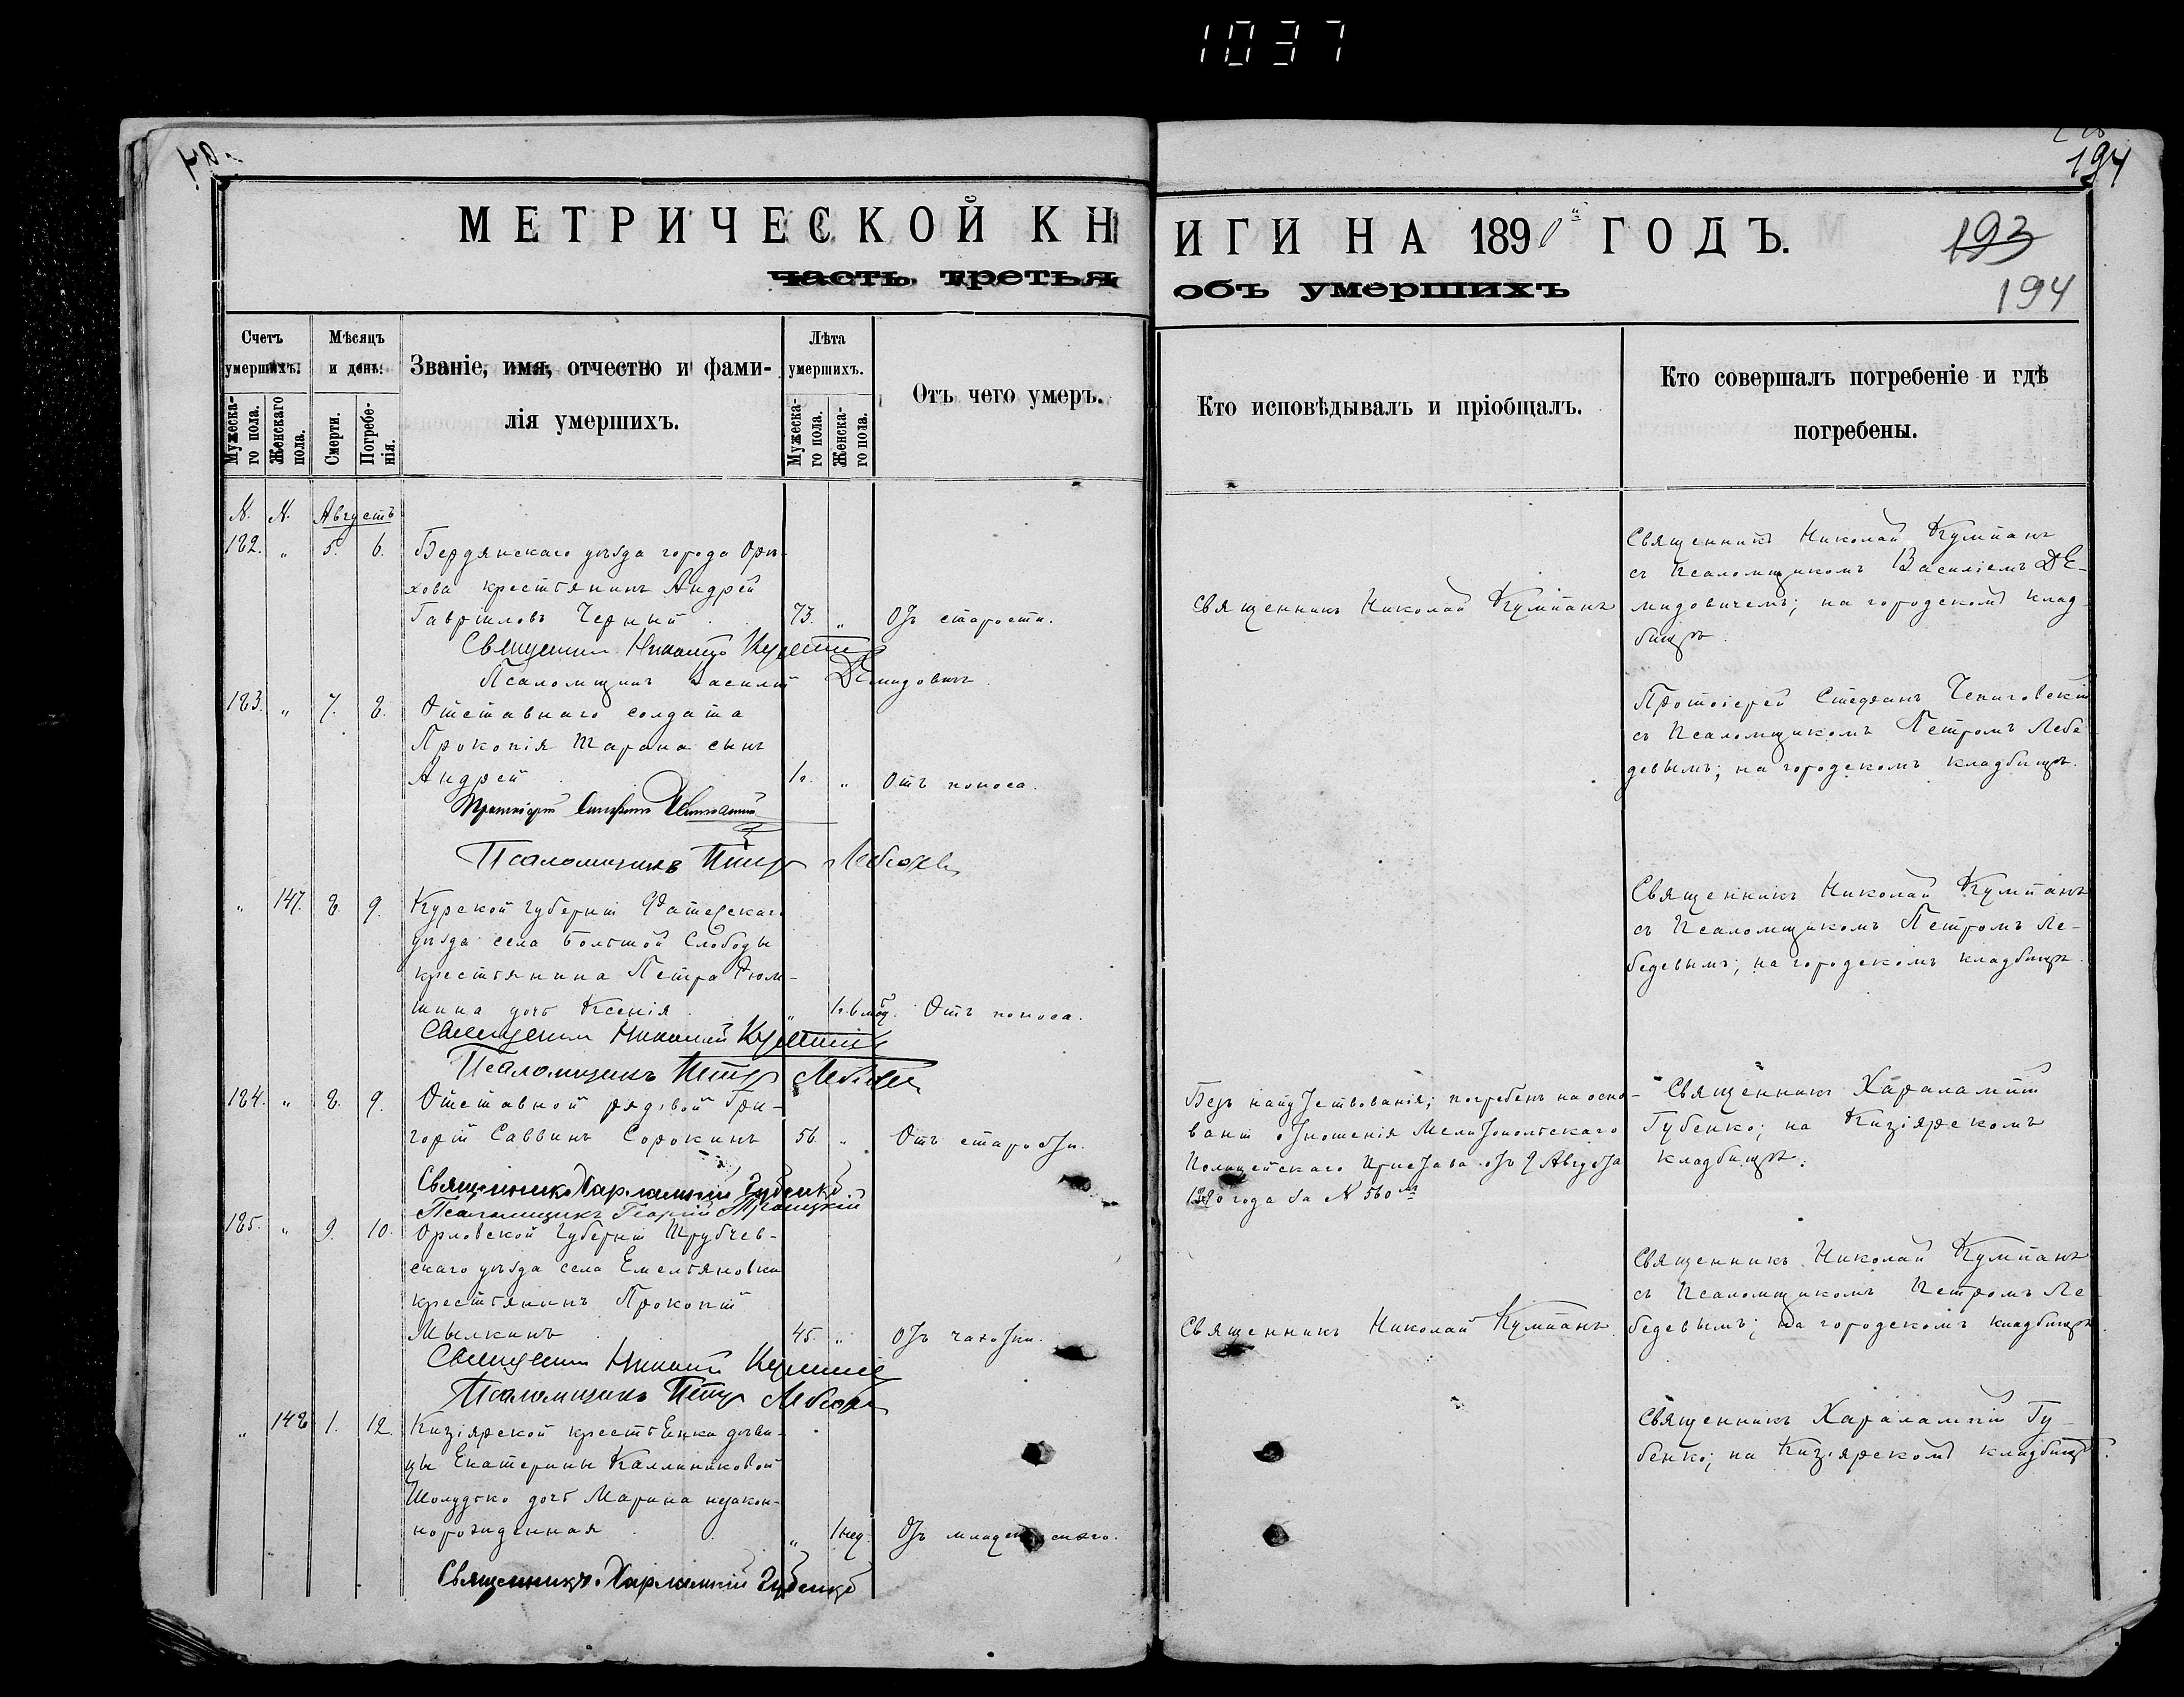 1037
194
МЕТРИЧЕСКОЙ КНИГИ НА 1890й ГОДЪ.
193
часть третья объ умершихъ
194
Счетъ умершихъ.
Мѣсяцъ и день.
Званіе, имя, отчество и фамилія умершихъ.
Лѣта умершихъ.
Отъ чего умеръ.
Кто исповѣдывалъ и пріобщалъ.
Кто совершалъ погребеніе и гдѣ погребены.
Мужескаго пола.
Женскаго пола.
Смерти.
Погребенія.
Мужескаго пола.
Женскаго пола.
N. N. Августъ
182. " 5. 6. Бердянскаго уѣзда города Орѣ-
хова крестьянинъ Андрей
Гавріиловъ Черный 73. " Отъ старости.
Священникъ Николай Кумпанъ
Псаломщикъ Василій Демидовичъ
Священникъ Николай Кумпанъ
Священникъ Николай Кумпанъ
съ Псаломщикомъ Василіемъ Де-
мидовичемъ; на городскомъ клад-
бищѣ.
183. " 7. 8. Отставнаго солдата
Прокопія Тарана сынъ
Андрей 1. " Отъ поноса.
Протоіерей Стефанъ
Псаломщикъ Петръ Лебедевъ
Протоіерей Стефанъ
съ Псаломщикомъ Петромъ Лебе
девымъ; на городскомъ кладбищѣ.
" 147. 8. 9. Курской губерніи Фатежскаго
уѣзда села Большой Слободы
крестьянина Петра
дочь Ксенія " 1. 6 мѣс. Отъ поноса.
Священникъ Николай Кумпанъ
Псаломщикъ Петръ Лебедевъ
Священникъ Николай Кумпанъ
съ Псаломщикомъ Петромъ Ле-
бедевымъ; на городскомъ кладбищѣ.
184. " 8. 9. Отставной рядовой Гри-
горій Саввинъ Сорокинъ 56 " Отъ старости.
Священникъ Харлампій Губенко
Псаломщикъ Георгій Троицкій
Безъ напутствованія; погребенъ на осно-
ваніи отношенія Мелитопольскаго
Полицейскаго Пристава отъ 9 Августа
1890 года за N 560м
Священникъ Харалампій
Губенко; на Кизіярскомъ
кладбищѣ.
185. " 9. 10. Орловской губерніи Трубчев-
скаго уѣзда села Емельяновки
крестьянинъ Прокопій
Мылкинъ 45. " Отъ чахотки.
Священникъ Николай Кумпанъ
Псаломщикъ Петръ Лебедевъ
Священникъ Николай Кумпанъ.
Священникъ Николай Кумпанъ
съ Псаломщикомъ Петромъ Ле
бедевымъ; на городскомъ кладбищѣ.
" 148 1. 12. Кизіярской крестьянки дѣви-
цы Екатерины Каллиниковой
Шолудько дочь Марина незакон-
норожденная " 1 нед. Отъ младенческаго.
Священникъ Харлампій Губенко
Священникъ Харалампій Гу-
бенко; на Кизіярскомъ кладбищѣ.